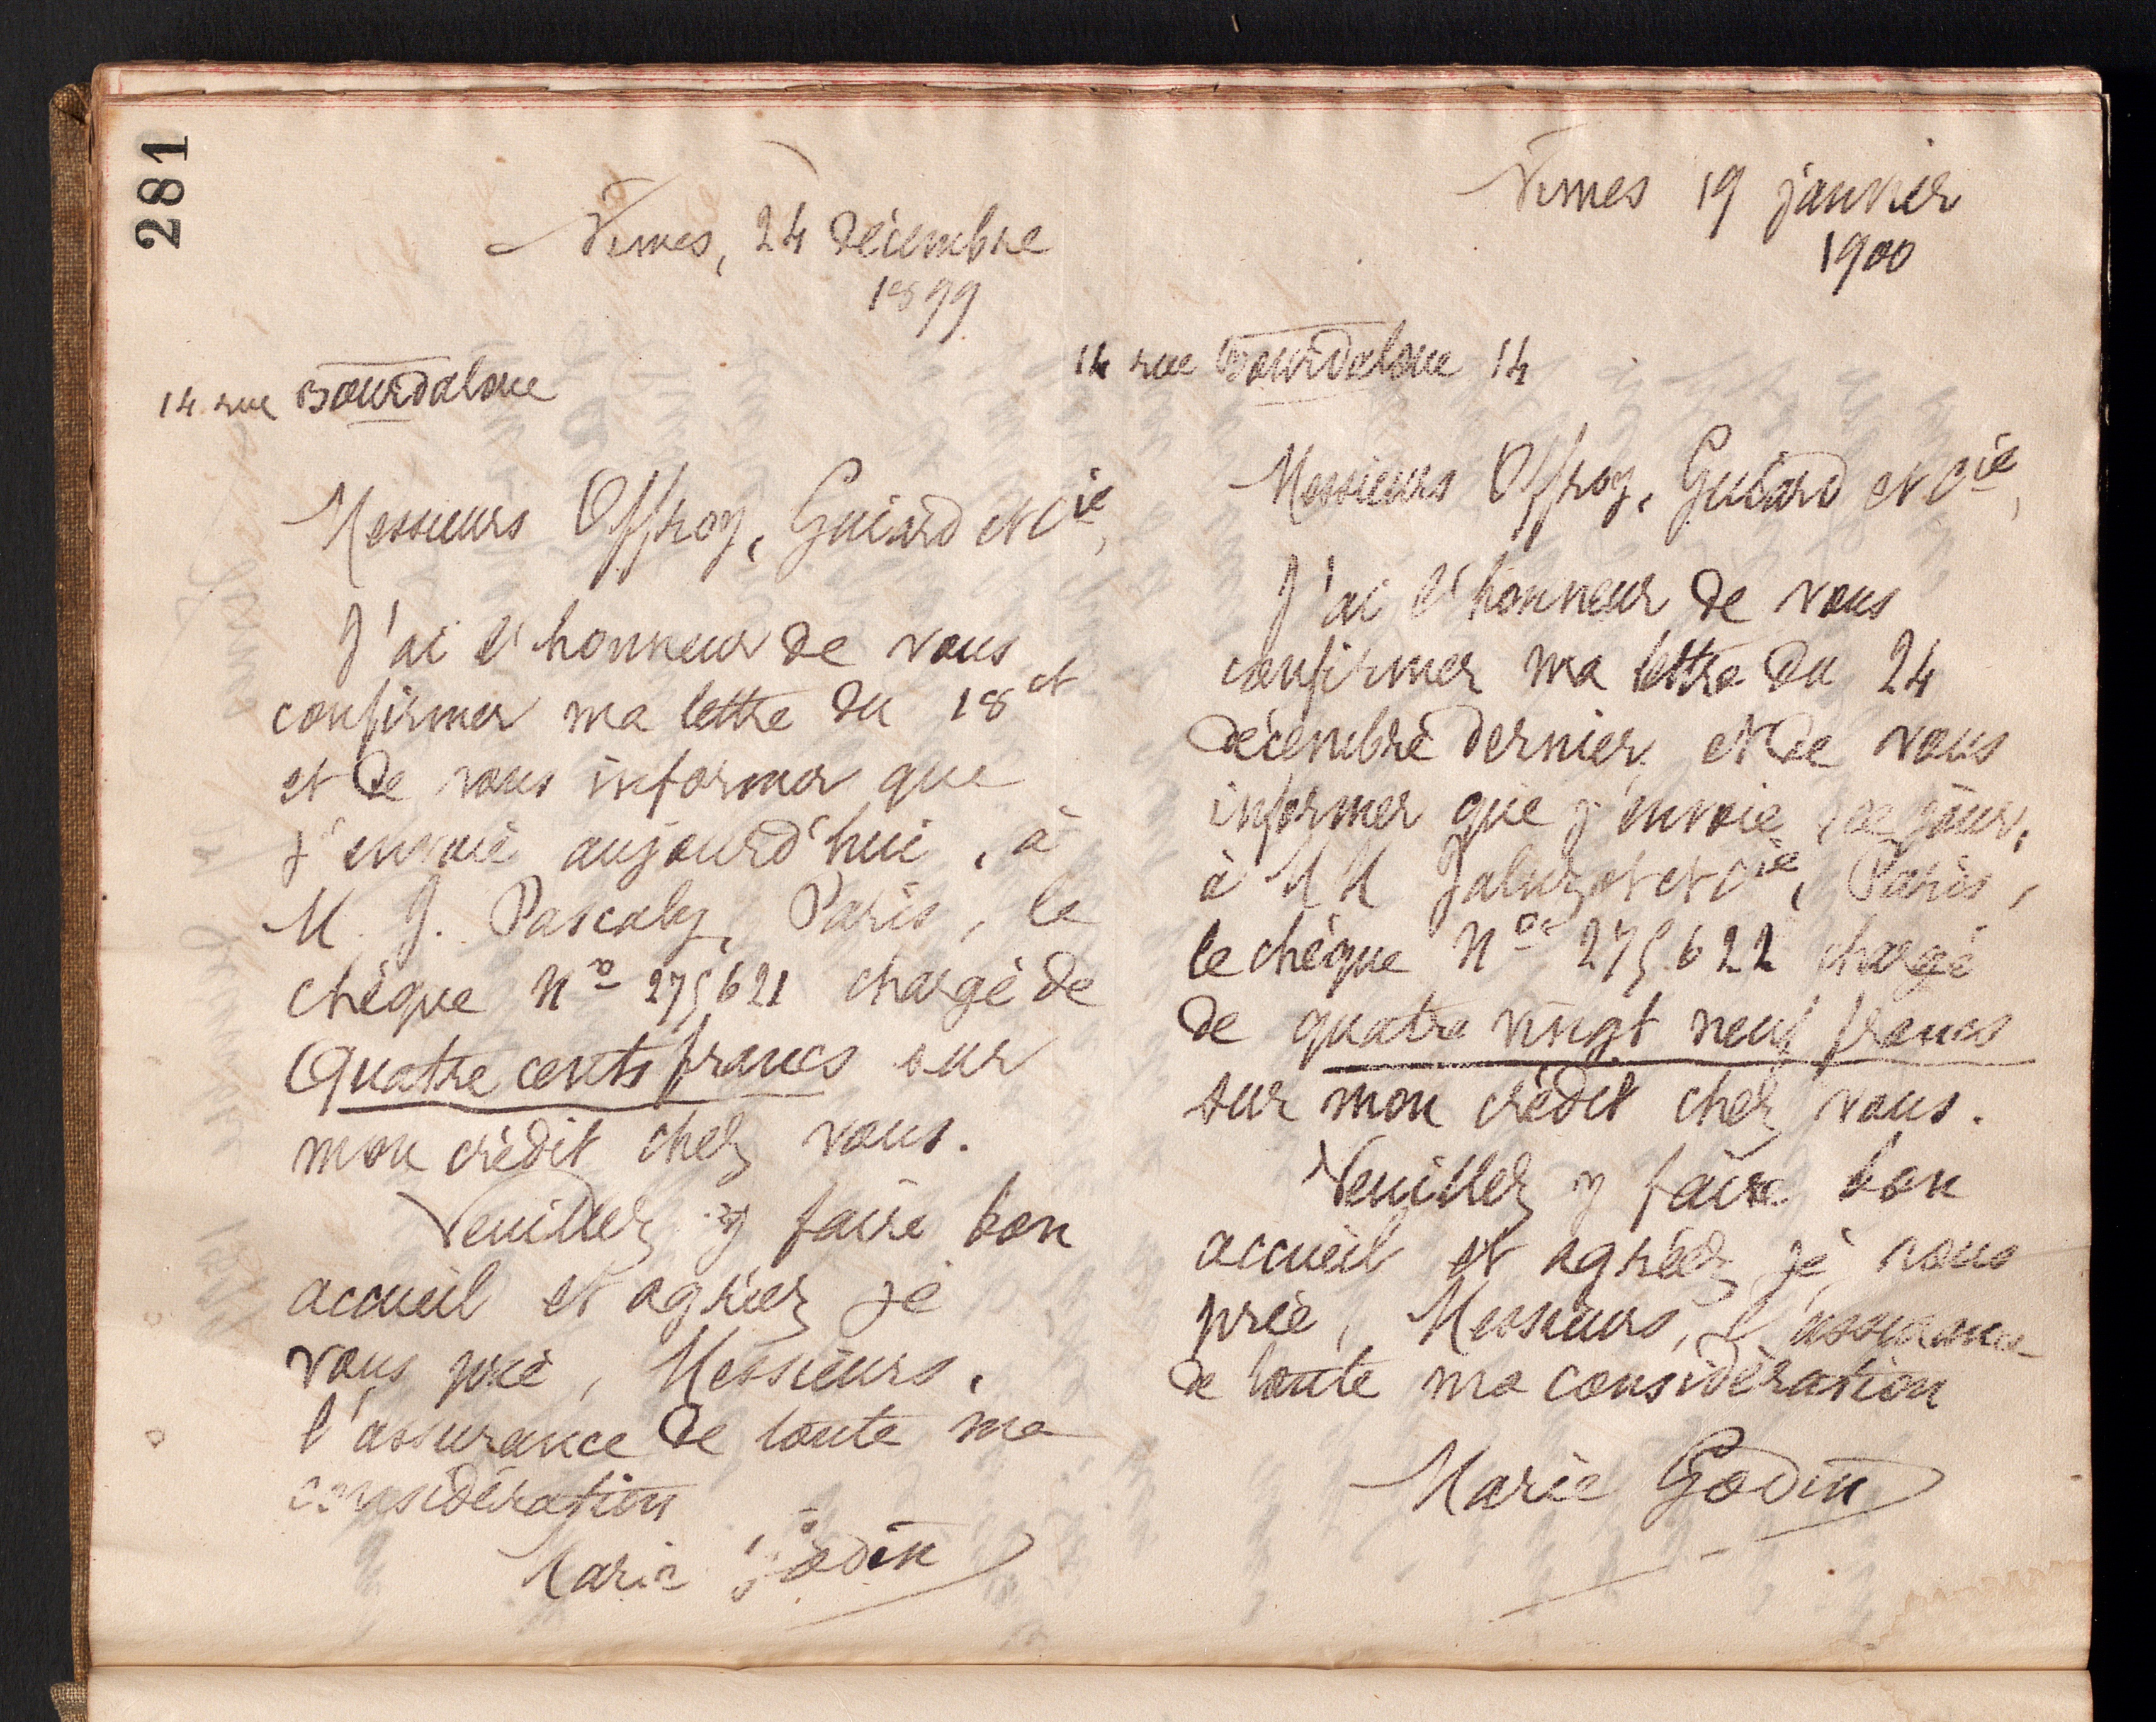 281
Nimes, 24 décembre
1899
14 rue Bourdaloue
Messieurs Offroy, Guiard et Cie,
J'ai l'honneur de vous
confirmer ma lettre du 18 ct
et de vous informer que
j'envoie aujourd'hui, à
M. J. Pascaly, Paris, le
chèque No 275621 chargé de
Quatre cents francs sur
mon crédit chez vous.
Veuillez y faire bon
accueil et agréer je
vous prie, Messieurs,
l'assurance de toute ma
considération
Marie Godin
Nimes 19 janvier
1900
14 rue Bourdaloue 14
Messieurs Offroy, Guiard et Cie,
J'ai l'honneur de vous
confirmer ma lettre du 24
décembre dernier, et de vous
informer que j'envoie, ce jour,
à MM Jaluzot et Cie, Paris,
le chèque No 275.622 chargé
de quatre vingt neuf francs
sur mon crédit chez vous.
Veuillez y faire bon
accueil et agréez, je vous
prie, Messieurs, l'assurance
de toute ma considération
Marie Godin